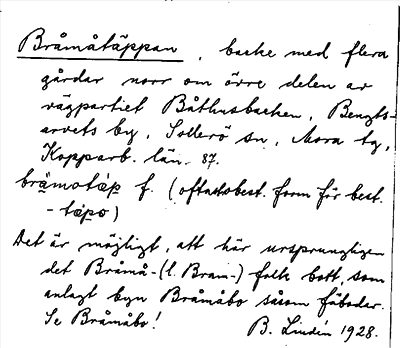 Bråmåtäppan, backe med flera
gårdar norr om övre delen av
vägpartiet Båthusbacken, Bengts-
arvets by, Sollerö sn, Mora tg,
Kopparb. län. 87.
brämotäp f. (oftast obest. form för best.
- täpo)
Det är möjligt, att här ursprungligen
det Bråmå- (l. Bram-) folk bott, som
anlagt byn Bråmåbo såsom fäbodar.
Se Bråmåbo!
B. Lindén 1928.